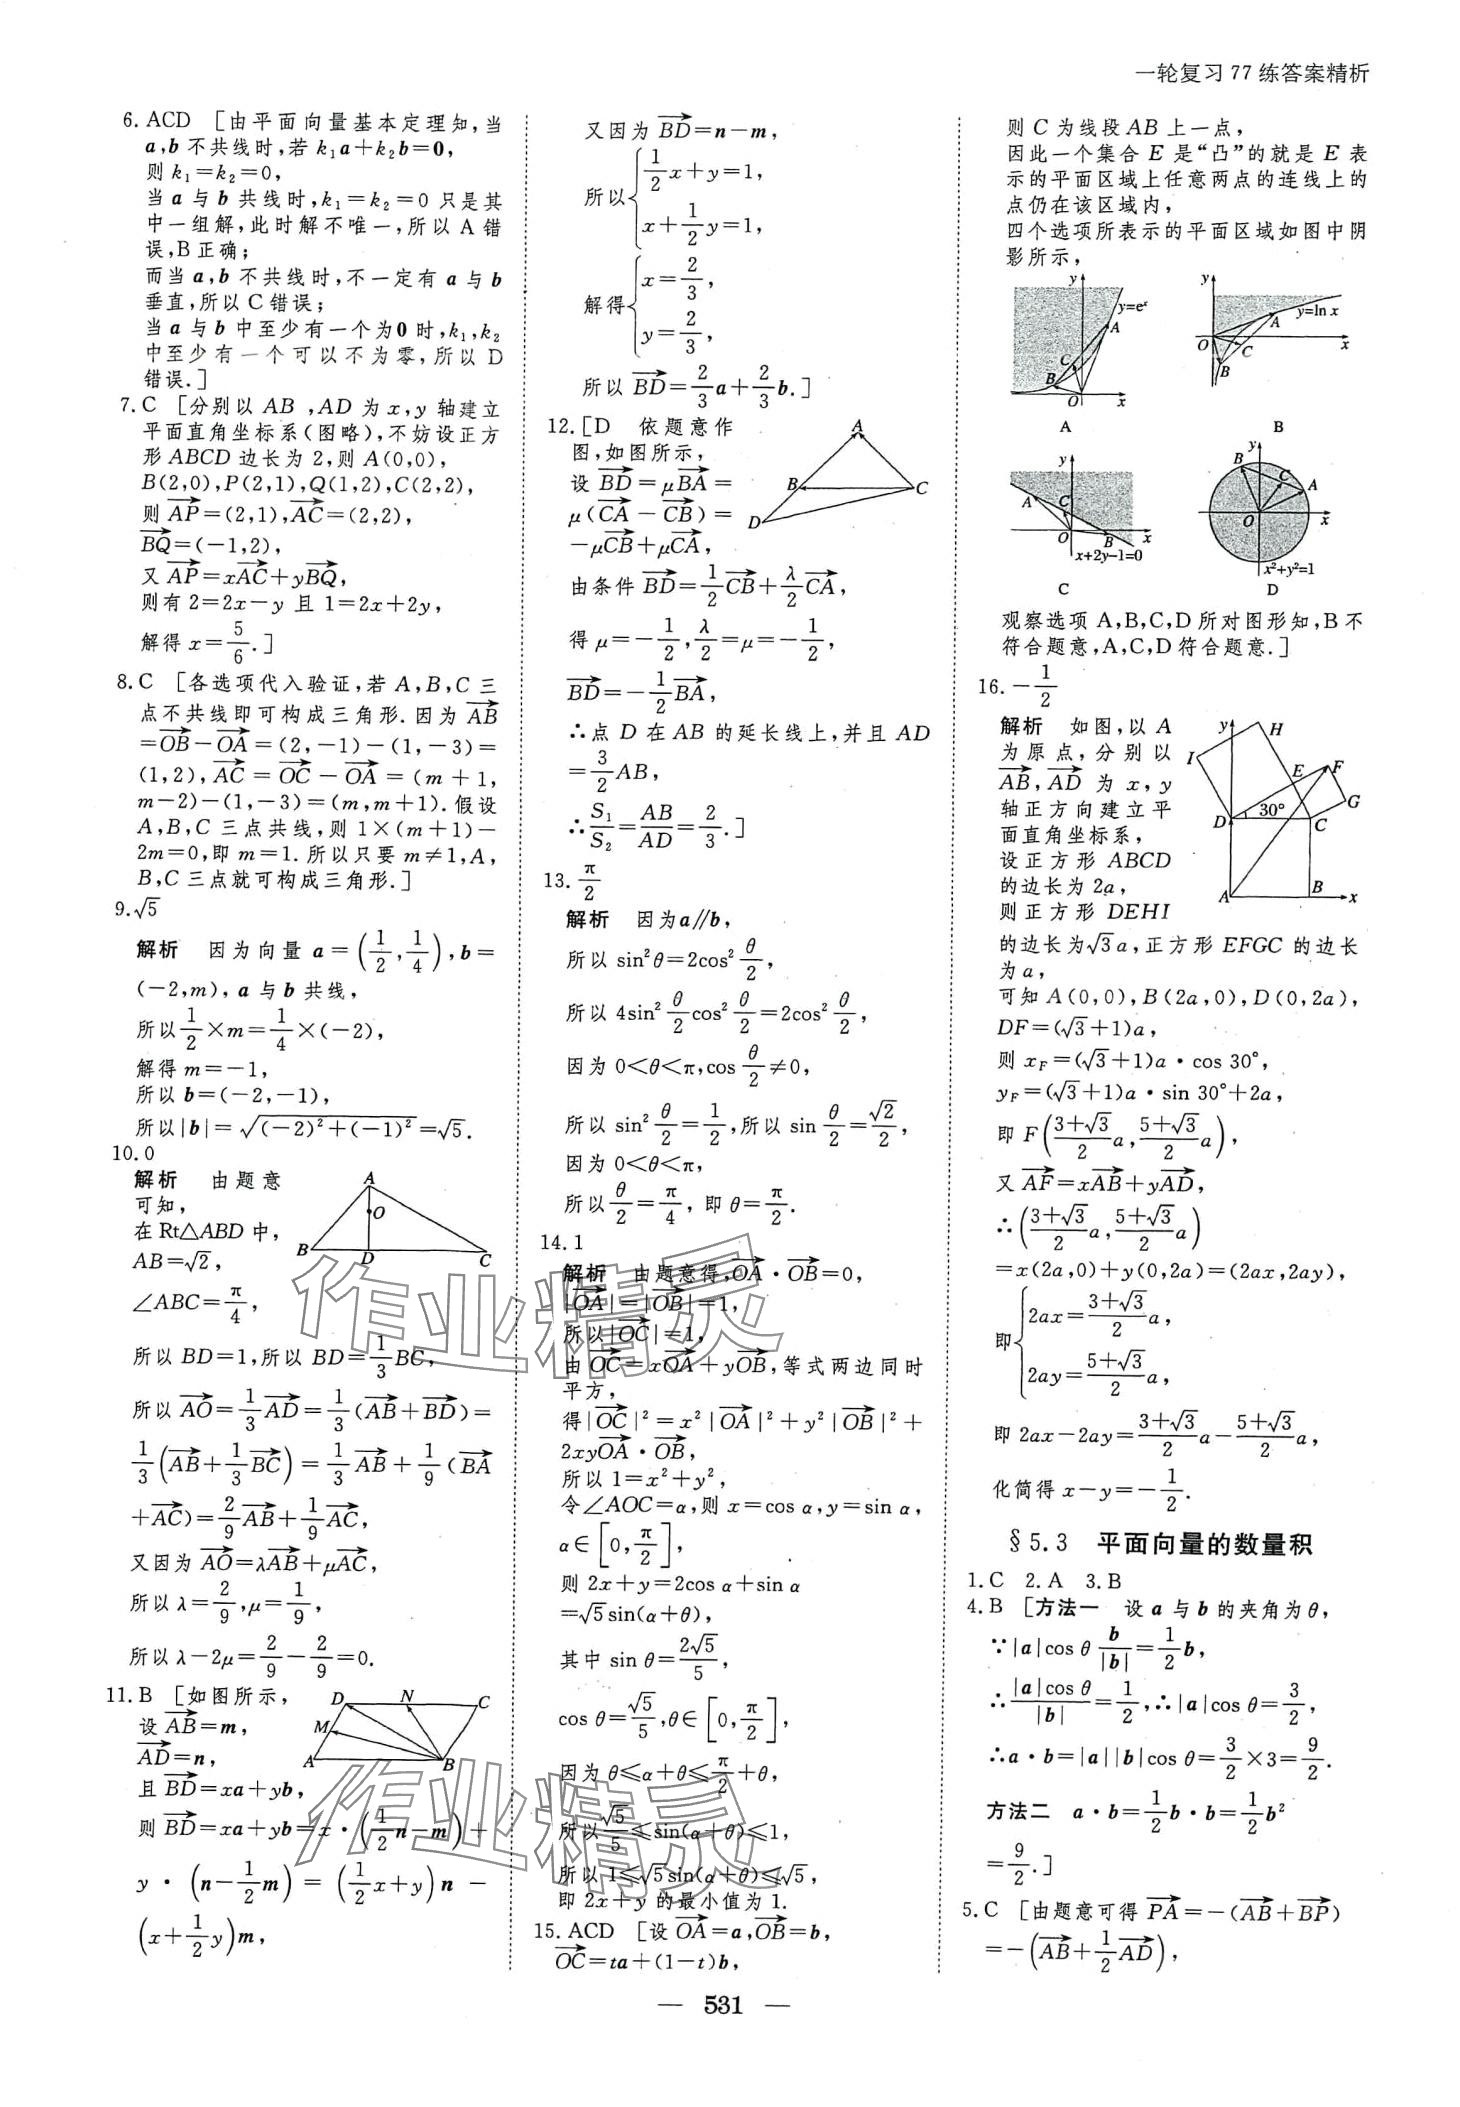 一轮复习77练答案精析
6. ACD [由平面向量基本定理知,当
a,b不共线时,若k₁a+k₂b=0,
则k₁=k₂=0,
当a与b共线时,k₁=k₂=0只是其
中一组解,此时解不唯一,所以A错
误,B正确;
而当a,b不共线时,不一定有a与b
垂直,所以C错误;
当a与b中至少有一个为0时,k₁,k₂
中至少有一个可以不为零,所以D
错误.]
7. C [分别以AB,AD为x,y轴建立
平面直角坐标系(图略),不妨设正方
形ABCD边长为2,则A(0,0),
B(2,0),P(2,1),Q(1,2),C(2,2),
则\overrightarrow{AP}=(2,1),\overrightarrow{AC}=(2,2),
\overrightarrow{BQ}=(-1,2),
又\overrightarrow{AP}=x\overrightarrow{AC}+y\overrightarrow{BQ},
则有2=2x-y且1=2x+2y,
解得x=5/6.]
8. C [各选项代入验证,若A,B,C三
点不共线即可构成三角形.因为\overrightarrow{AB}
=\overrightarrow{OB}-\overrightarrow{OA}=(2,-1)-(1,-3)=
(1,2),\overrightarrow{AC}=\overrightarrow{OC}-\overrightarrow{OA}=(m+1,
m-2)-(1,-3)=(m,m+1).假设
A,B,C三点共线,则1×(m+1)-
2m=0,即m=1.所以只要m≠1,A,
B,C三点就可构成三角形.]
9. √5
解析 因为向量a=(1/2,1/4),b=
(-2,m),a与b共线,
所以1/2×m=1/4×(-2),
解得m=-1,
所以b=(-2,-1),
所以|b|=√((-2)²+(-1)²)=√5.
10. 0
解析 由题意
可知,
在Rt△ABD中,
AB=√2,
∠ABC=π/4,
A O B D C
所以BD=1,所以BD=1/3BC,
所以\overrightarrow{AO}=1/3\overrightarrow{AD}=1/3(\overrightarrow{AB}+\overrightarrow{BD})=
1/3(\overrightarrow{AB}+1/3\overrightarrow{BC})=1/3\overrightarrow{AB}+1/9(\overrightarrow{BA}
+\overrightarrow{AC})=2/9\overrightarrow{AB}+1/9\overrightarrow{AC},
又因为\overrightarrow{AO}=λ\overrightarrow{AB}+μ\overrightarrow{AC},
所以λ=2/9,μ=1/9,
所以λ-2μ=2/9-2/9=0.
11. B [如图所示,
设\overrightarrow{AB}=m,
\overrightarrow{AD}=n,
D N C M A B
且\overrightarrow{BD}=xa+yb,
则\overrightarrow{BD}=xa+yb=x·(1/2n-m)+
y·(n-1/2m)=(1/2x+y)n-
(x+1/2y)m,
又因为\overrightarrow{BD}=n-m,
所以{1/2x+y=1,
x+1/2y=1,
解得{x=2/3,
y=2/3,
所以\overrightarrow{BD}=2/3a+2/3b.]
12. [D 依题意作
图,如图所示,
设\overrightarrow{BD}=μ\overrightarrow{BA}=
μ(\overrightarrow{CA}-\overrightarrow{CB})=
-μ\overrightarrow{CB}+μ\overrightarrow{CA},
A B C D
由条件\overrightarrow{BD}=1/2\overrightarrow{CB}+λ/2\overrightarrow{CA},
得μ=-1/2,λ/2=μ=-1/2,
\overrightarrow{BD}=-1/2\overrightarrow{BA},
∴点D在AB的延长线上,并且AD
=3/2AB,
∴S₁/S₂=AB/AD=2/3.]
13. π/2
解析 因为a∥b,
所以sin²θ=2cos²θ/2,
所以4sin²θ/2cos²θ/2=2cos²θ/2,
因为0<θ<π,cosθ/2≠0,
所以sin²θ/2=1/2,所以sinθ/2=√2/2,
因为0<θ<π,
所以θ/2=π/4,即θ=π/2.
14. 1
解析 由题意得,\overrightarrow{OA}·\overrightarrow{OB}=0,
|\overrightarrow{OA}|=|\overrightarrow{OB}|=1,
所以|\overrightarrow{OC}|=1,
由\overrightarrow{OC}=x\overrightarrow{OA}+y\overrightarrow{OB},等式两边同时
平方,
得|\overrightarrow{OC}|²=x²|\overrightarrow{OA}|²+y²|\overrightarrow{OB}|²+
2xy\overrightarrow{OA}·\overrightarrow{OB},
所以1=x²+y²,
令∠AOC=α,则x=cos α,y=sin α,
α∈[0,π/2],
则2x+y=2cos α+sin α
=√5sin(α+θ),
其中sin θ=2√5/5,
cos θ=√5/5,θ∈[0,π/2],
因为θ≤α+θ≤π/2+θ,
所以√5/5≤sin(α+θ)≤1,
所以1≤√5sin(α+θ)≤√5,
即2x+y的最小值为1.
15. ACD [设\overrightarrow{OA}=a,\overrightarrow{OB}=b,
\overrightarrow{OC}=ta+(1-t)b,
则C为线段AB上一点,
因此一个集合E是“凸”的就是E表
示的平面区域上任意两点的连线上的
点仍在该区域内,
四个选项所表示的平面区域如图中阴
影所示,
y y=eˣ A C B O x
A
y y=ln x A O C B x
B
y A C O B x x+2y-1=0
C
y B C A O x x²+y²=1
D
观察选项A,B,C,D所对图形知,B不
符合题意,A,C,D符合题意.]
16. -1/2
解析 如图,以A
为原点,分别以
\overrightarrow{AB},\overrightarrow{AD}为x,y
轴正方向建立平
面直角坐标系,
设正方形ABCD
的边长为2a,
则正方形DEHI
y H I E F G D 30° C A B x
的边长为√3a,正方形EFGC的边长
为a,
可知A(0,0),B(2a,0),D(0,2a),
DF=(√3+1)a,
则x_F=(√3+1)a·cos 30°,
y_F=(√3+1)a·sin 30°+2a,
即F((3+√3)/2a,(5+√3)/2a),
又\overrightarrow{AF}=x\overrightarrow{AB}+y\overrightarrow{AD},
∴((3+√3)/2a,(5+√3)/2a)
=x(2a,0)+y(0,2a)=(2ax,2ay),
即{2ax=(3+√3)/2a,
2ay=(5+√3)/2a,
即2ax-2ay=(3+√3)/2a-(5+√3)/2a,
化简得x-y=-1/2.
§5.3 平面向量的数量积
1. C 2. A 3. B
4. B [方法一 设a与b的夹角为θ,
∵|a|cos θ b/|b|=1/2b,
∴|a|cos θ/|b|=1/2,∴|a|cos θ=3/2,
∴a·b=|a||b|cos θ=3/2×3=9/2.
方法二 a·b=1/2b·b=1/2b²
=9/2.]
5. C [由题意可得\overrightarrow{PA}=-(\overrightarrow{AB}+\overrightarrow{BP})
=-(\overrightarrow{AB}+1/2\overrightarrow{AD}),
作业精灵
作业精灵
— 531 —